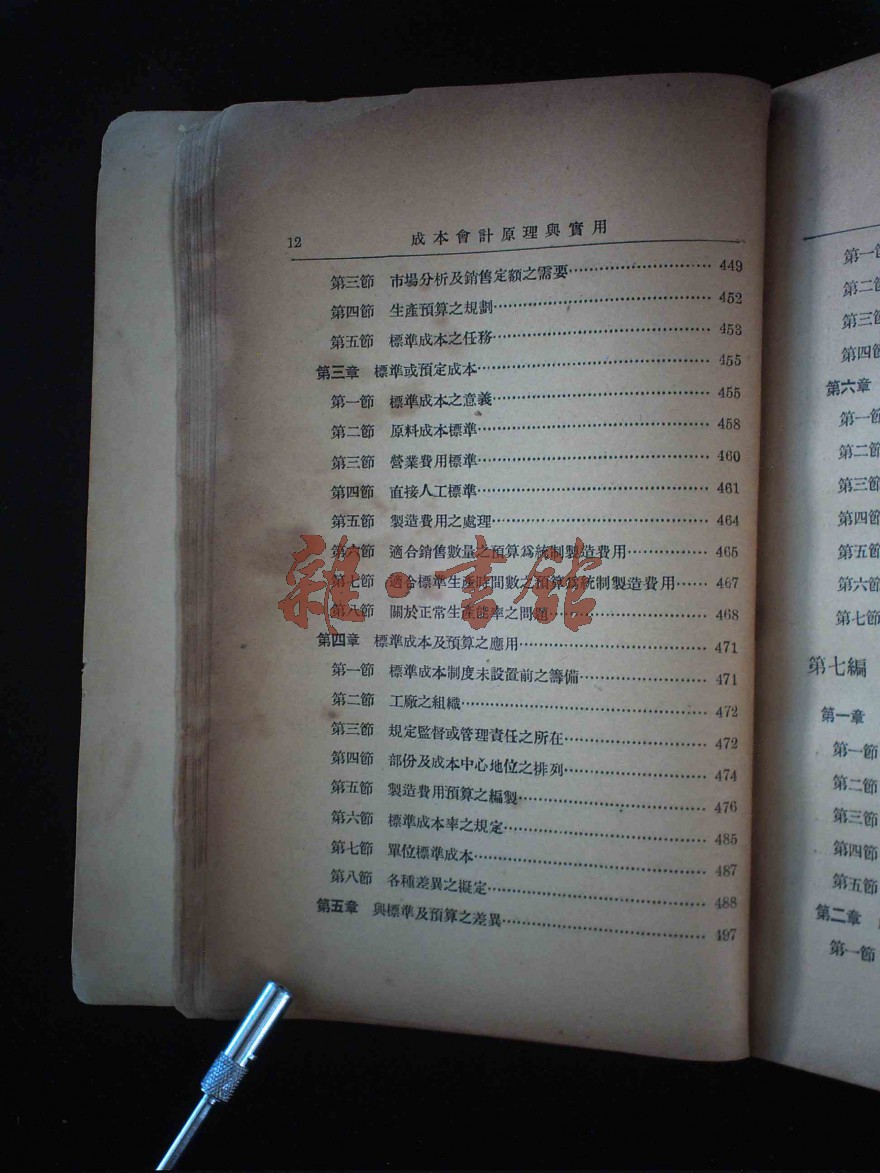 12 成本會計原理與實用
第三節 市場分析及銷售定額之需要………………………… 449
第四節 生產預算之規劃………………………… 452
第五節 標準成本之任務………………………… 453
第三章 標準或預定成本………………………… 455
第一節 標準成本之意義………………………… 455
第二節 原料成本標準………………………… 458
第三節 營業費用標準………………………… 460
第四節 直接人工標準………………………… 461
第五節 製造費用之處理………………………… 464
第六節 適合銷售數量之預算爲統制製造費用………… 465
第七節 適合標準生產時間數之預算爲統制製造費用…… 467
第八節 關於正常生產能率之問題………………… 468
第四章 標準成本及預算之應用………………………… 471
第一節 標準成本制度未設置前之籌備………………… 471
第二節 工廠之組織………………………… 472
第三節 規定監督或管理責任之所在………………… 472
第四節 部份及成本中心地位之排列………………… 474
第五節 製造費用預算之編製………………………… 476
第六節 標準成本率之規定………………………… 485
第七節 單位標準成本………………………… 487
第八節 各種差異之擬定………………………… 488
第五章 與標準及預算之差異………………………… 497
雜·書館
第一節
第二節
第三節
第四節
第六章
第一節
第二節
第三節
第四節
第五節
第六節
第七節
第七編
第一章
第一節
第二節
第三節
第四節
第五節
第二章
第一節